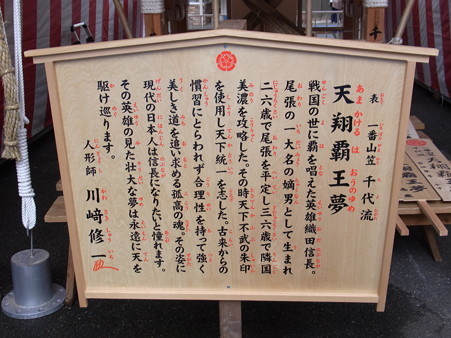 表 一番山笠 千代流
天翔覇王夢
あまかけるはおうのゆめ
戦国の世に覇を唱えた英雄織田信長。
尾張の一大名の嫡男として生まれ
二六歳で尾張を平定し三六歳で隣国
美濃を攻略した。その時天下不武の朱印
を使用し天下統一を志した。古来からの
慣習にとらわれず合理性を持って強く
美しき道を追い求める孤高の魂。その姿に
現代の日本人は信長になりたいと憧れます。
その英雄の見た壮大な夢は永遠に天を
駆け巡ります。
人形師 川﨑修一